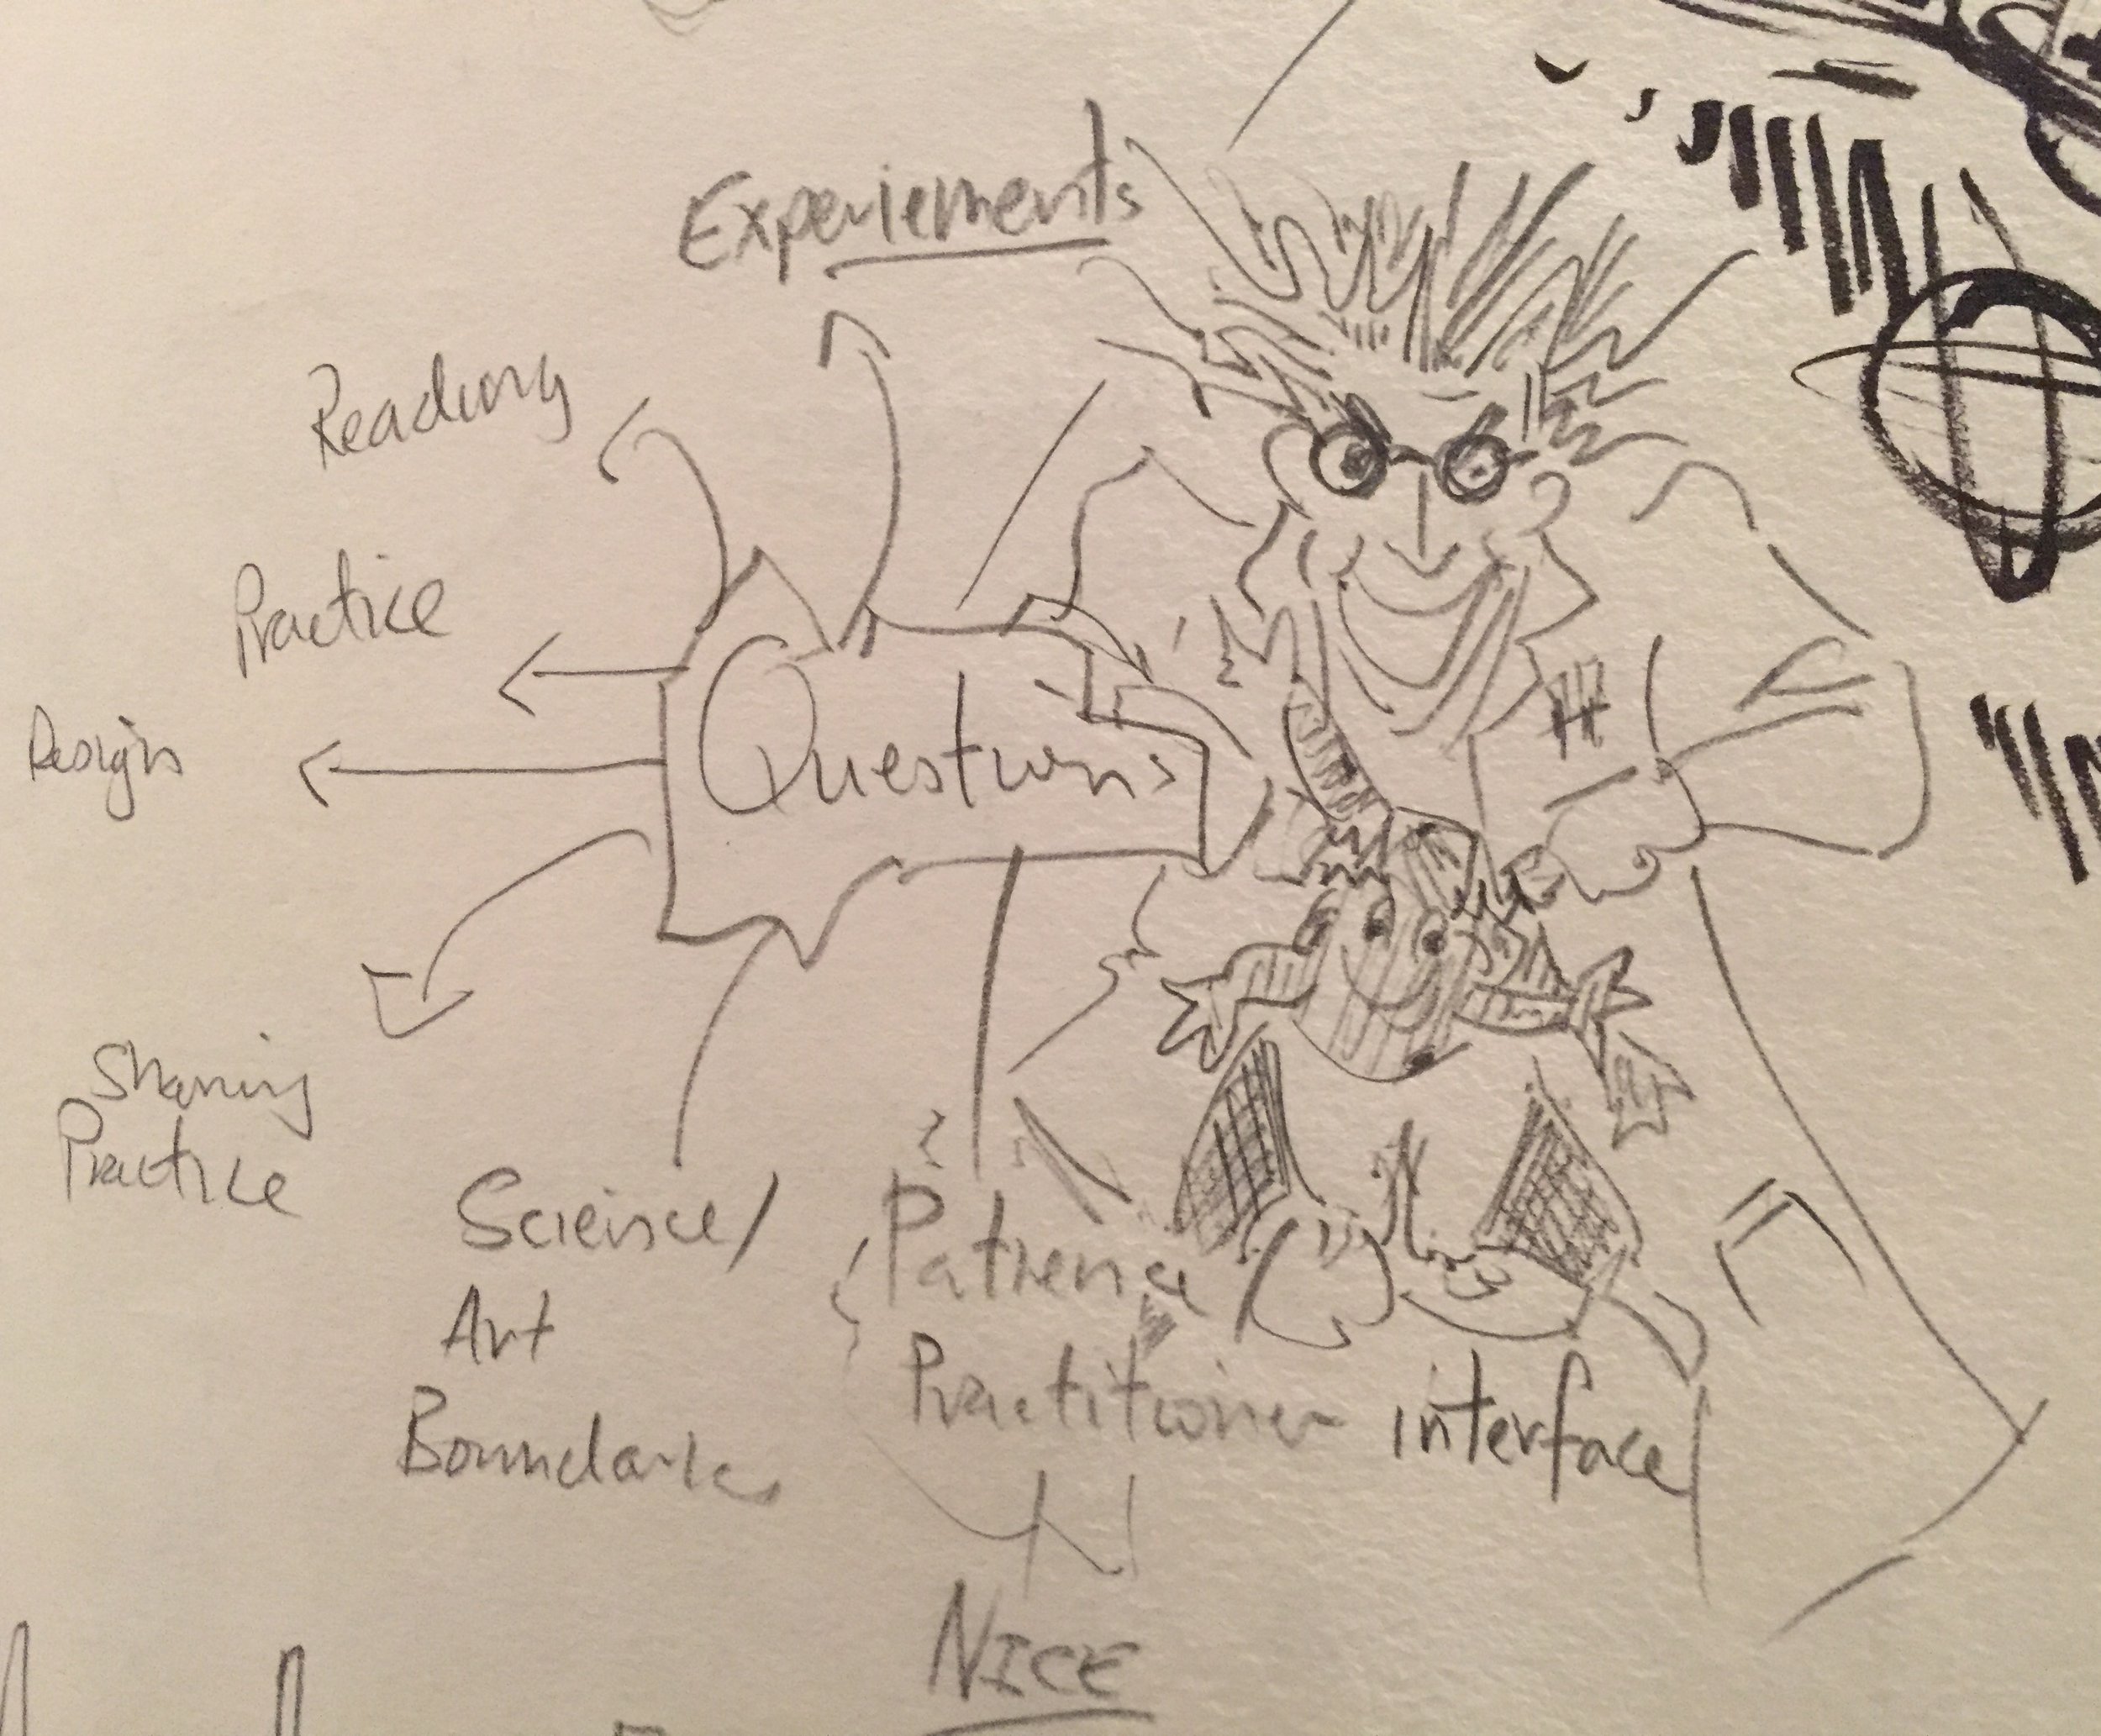 Experiements
Reading
Practice
Design
Questions
Sharing
Practice
Science/
Art
Patience
Practitioner interface
NICE